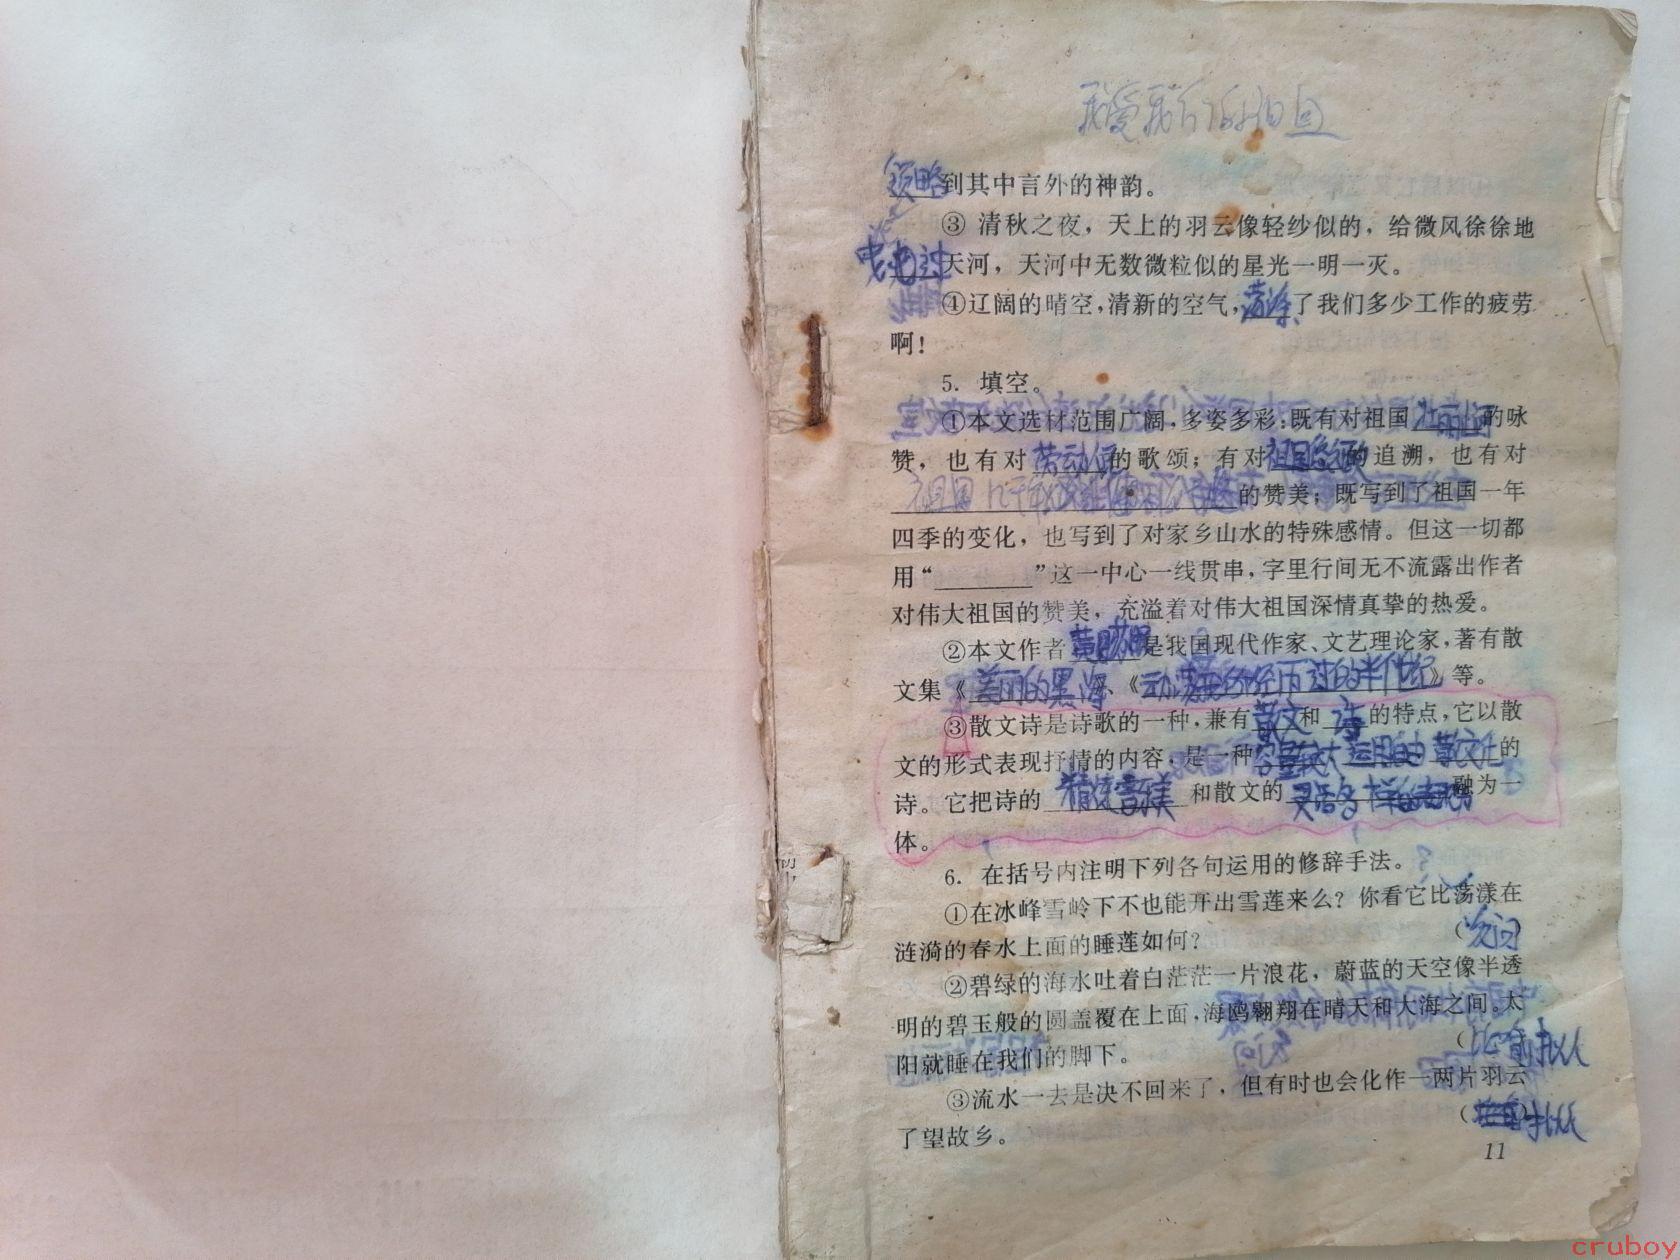 我爱我们的祖国
领略到其中言外的神韵。
③ 清秋之夜，天上的羽云像轻纱似的，给微风徐徐地
天河，天河中无数微粒似的星光一明一灭。
④辽阔的晴空，清新的空气，荡涤了我们多少工作的疲劳
啊！
5. 填空。
①本文选材范围广阔，多姿多彩：既有对祖国的咏
赞，也有对劳动人民的歌颂；有对祖国的追溯，也有对
祖国几千年的赞美；既写到了祖国一年
四季的变化，也写到了对家乡山水的特殊感情。但这一切都
用“ ”这一中心一线贯串，字里行间无不流露出作者
对伟大祖国的赞美，充溢着对伟大祖国深情真挚的热爱。
②本文作者黄药眠是我国现代作家、文艺理论家，著有散
文集《美丽的黑海》、《动荡：我所经历过的半世纪》等。
③散文诗是诗歌的一种，兼有散文和诗的特点，它以散
文的形式表现抒情的内容，是一种容量较大运用自由散文化的
诗。它把诗的精炼音乐美和散文的灵活多样的表现力融为一
体。
6. 在括号内注明下列各句运用的修辞手法。
①在冰峰雪岭下不也能开出雪莲来么？你看它比荡漾在
涟漪的春水上面的睡莲如何？ （反问
②碧绿的海水吐着白茫茫一片浪花，蔚蓝的天空像半透
明的碧玉般的圆盖覆在上面，海鸥翱翔在晴天和大海之间。太
阳就睡在我们的脚下。 （比喻拟人
③流水一去是决不回来了，但有时也会化作一两片羽云
了望故乡。 （拟人
11
cruboy